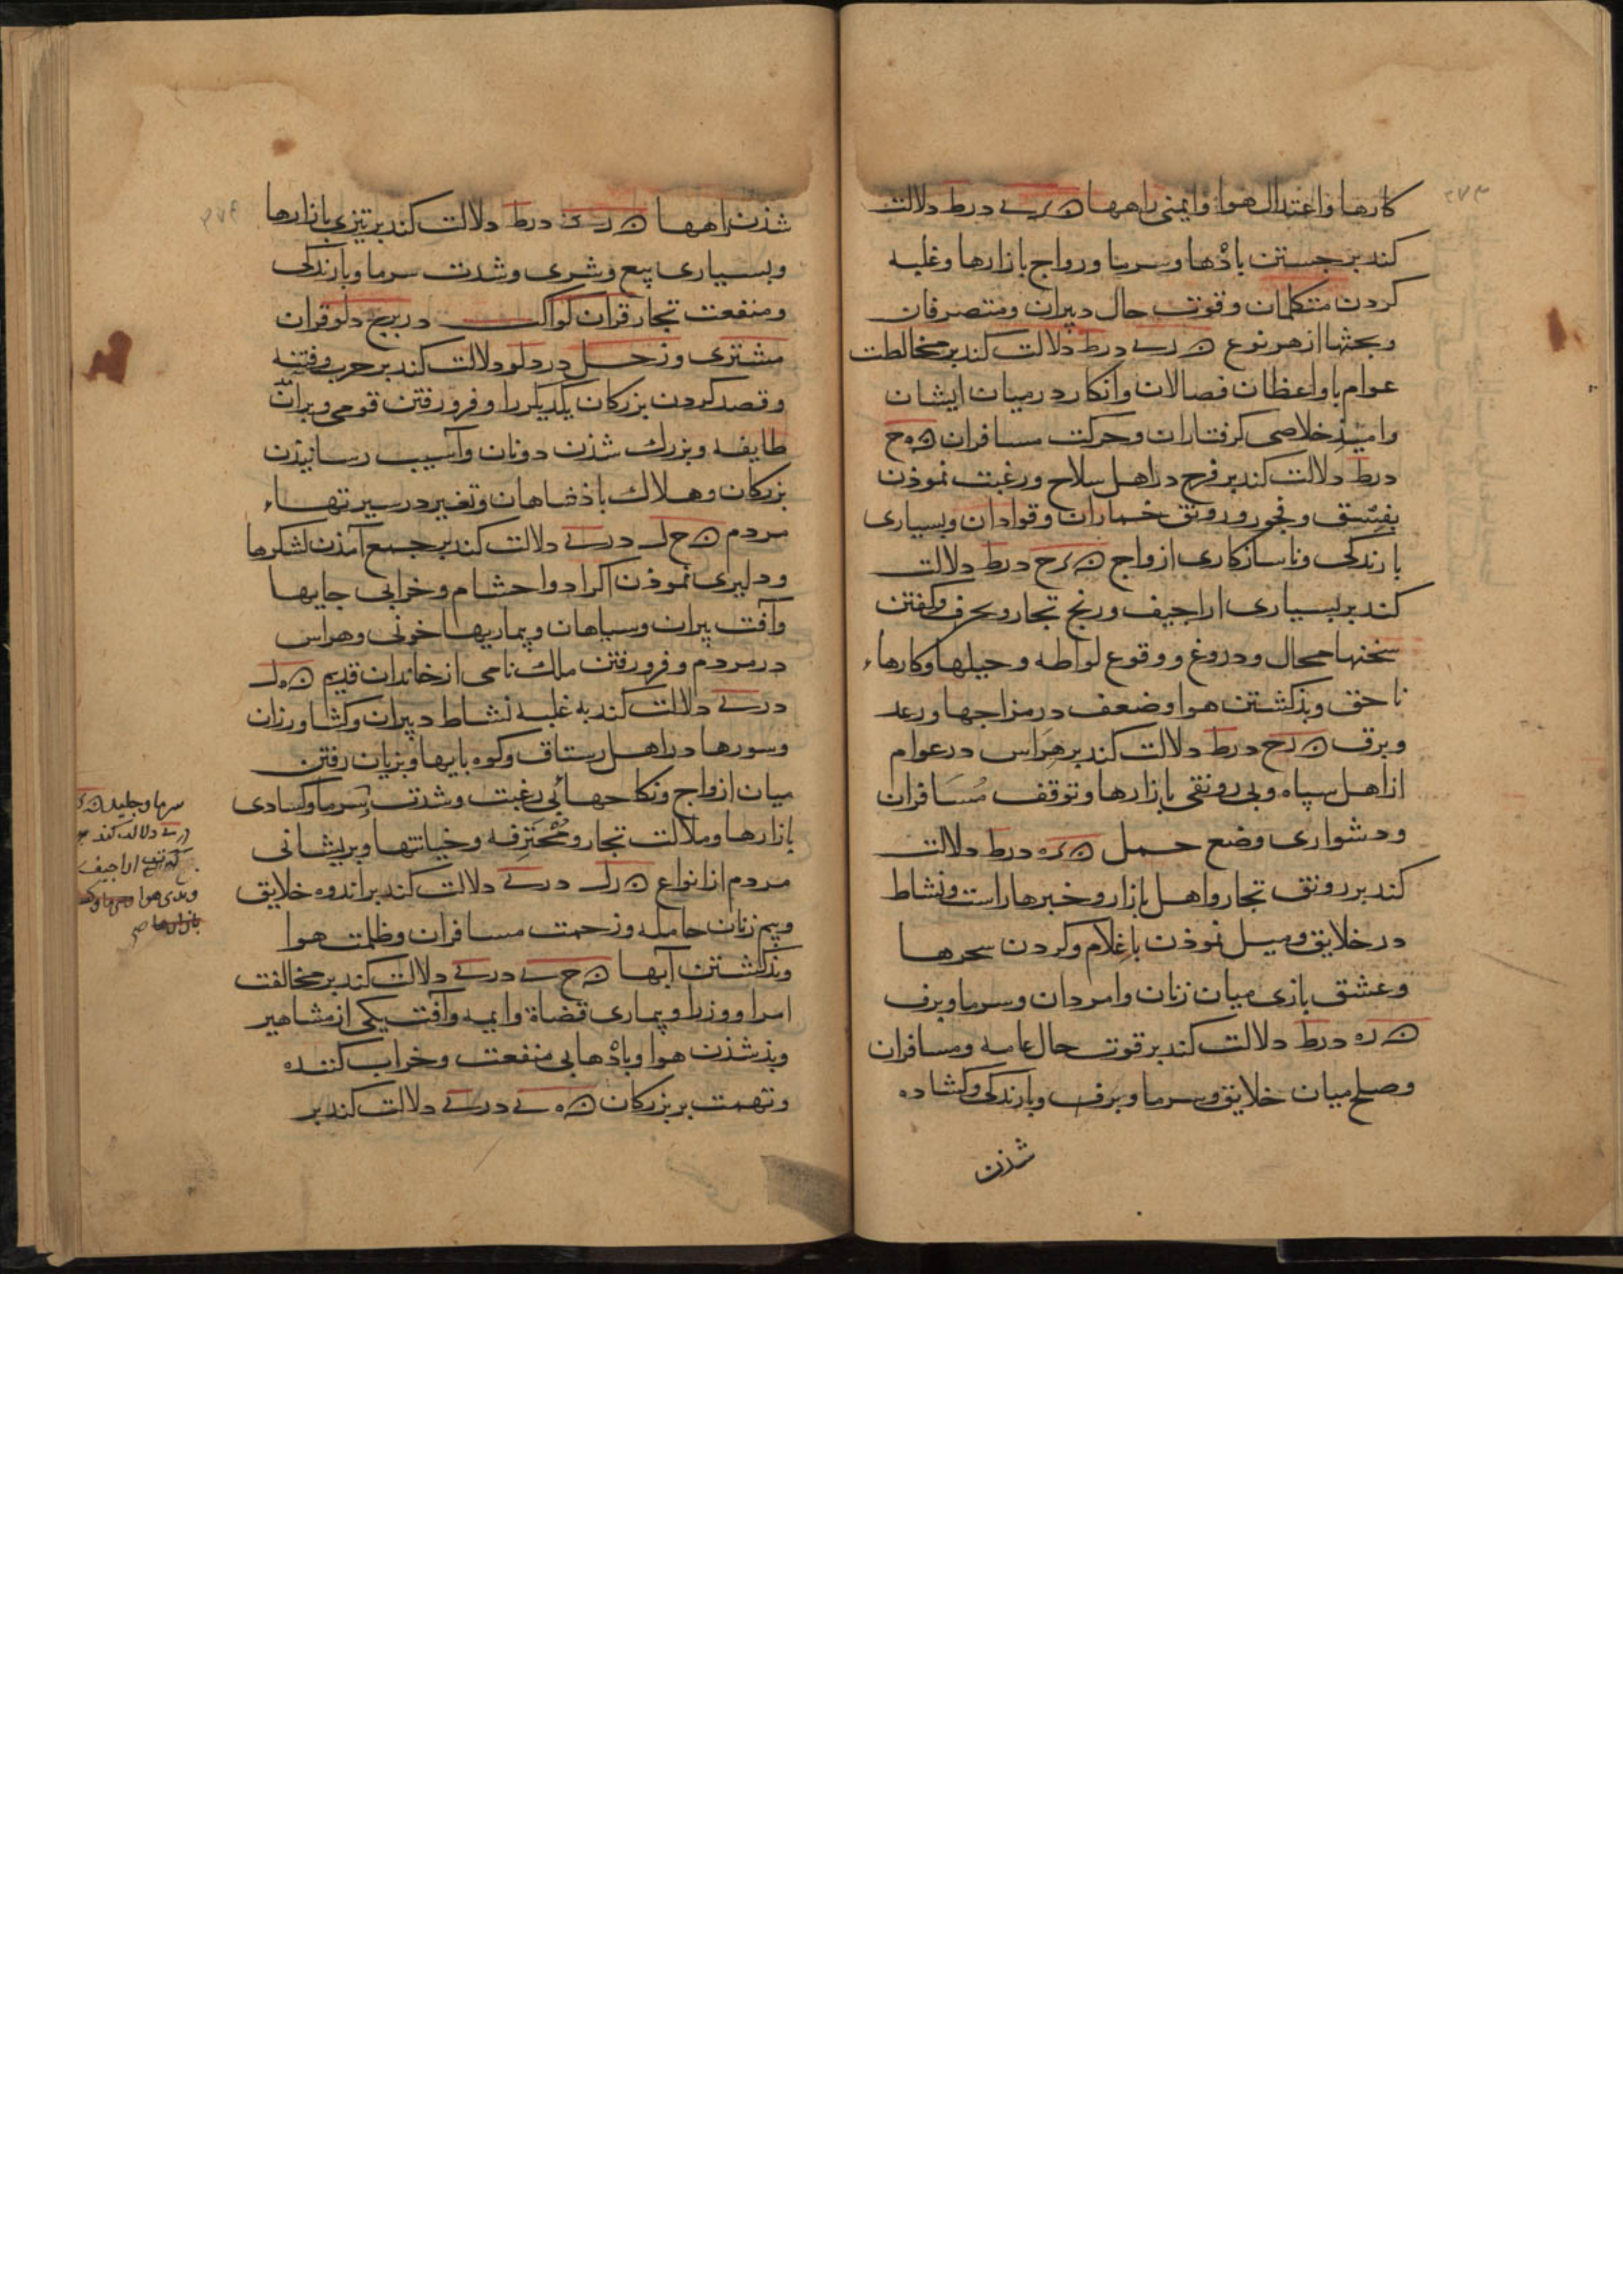 کارها و اعتدال هوا و ایمنی راهها ن ری درط دلالت
کند بر جستن باذها و سرما و رواج بازارها و غلبه
کردن متکلمان و قوت حال دبیران و متصرفان
و بحثها از هر نوع ن ری درط دلالت کند بر مخالطت
عوام با واعظان فصالان و انکار در میان ایشان
و امیذ خلاصی کرفتاران و حرکت مسافران ن ه ح
درط دلالت کند بر فرح در اهل سلاح و رغبت نموذن
بفسق و فجور و رونق خماران و قوادان و بسیاری
بارندکی و ناسازکاری ازواج ن رح درط دلالت
کند بر بسیاری اراجیف و رنج تجار و محرف و کفتن
سخنها محال و دروغ و وقوع لواطه و حیلها و کارهاء
ناحق و بذکشتن هوا و ضعف در مزاجها و رعد
و برق ن رح درط دلالت کند بر هراس در عوام
از اهل سپاه و بی رونقی بازارها و توقف مسافران
و دشواری وضع حمل ن ره درط دلالت
کند بر رونق تجار و اهل بازار و خبرها راست و نشاط
در خلایق و میل نموذن با غلام و کردن سحرها
و عشق بازی میان زنان و امردان و سرما و برف
ن ره درط دلالت کند بر قوت حال عامه و مسافران
و صلح میان خلایق و سرما و برف و بارندکی و کشاده
شذن
شذن راهها ن ری درط دلالت کند بر تیزی بازارها
و بسیاری بیع و شری و شدت سرما و بارندکی
و منفعت تجار قران کواکب در برج دلو قران
مشتری و زحل در دلو دلالت کند بر حرب و فتنه
و قصد کردن بزرکان یکدیکر را و فرو رفتن قومی و بران
طایفه و بزرك شذن دونان و آسیب رسانیذن
بزرکان و هلاك باذشاهان و تغییر در سیرتهاء
مردم ن ح ل دری دلالت کند بر جمع آمذن لشکرها
و دلیری نموذن اکراد و احشام و خرابی جایها
و آفت پیران و سیاهان و بیماریها خونی و هراس
در مردم و فرو رفتن ملك نامی از خاندان قدیم ن ه ل
دری دلالت کند به غلبه نشاط دبیران و کشاورزان
و سورها در اهل رستاق و کوه بایها و بزیان رفتن
میان ازواج و نکاحها بی رغبت و شدت سرما و کسادی
بازارها و ملالت تجار و محترفه و خیانتها و پریشانی
مردم از انواع ن رل دری دلالت کند بر اندوه خلایق
و بیم زنان حامله و زحمت مسافران و ظلمت هوا
و بذکشتن آبها ن ح ی دری دلالت کند بر مخالفت
امرا و وزرا و بیماری قضاة و ایمه و آفت یکی از مشاهیر
و بذ شذن هوا و باذها بی منفعت و خراب کننده
و تهمت بر بزرکان ن ه ی دری دلالت کند بر
سرما و جلید ن
دری دلالت کند
کثرت اراجیف
و بدی هوا
بازارها صح